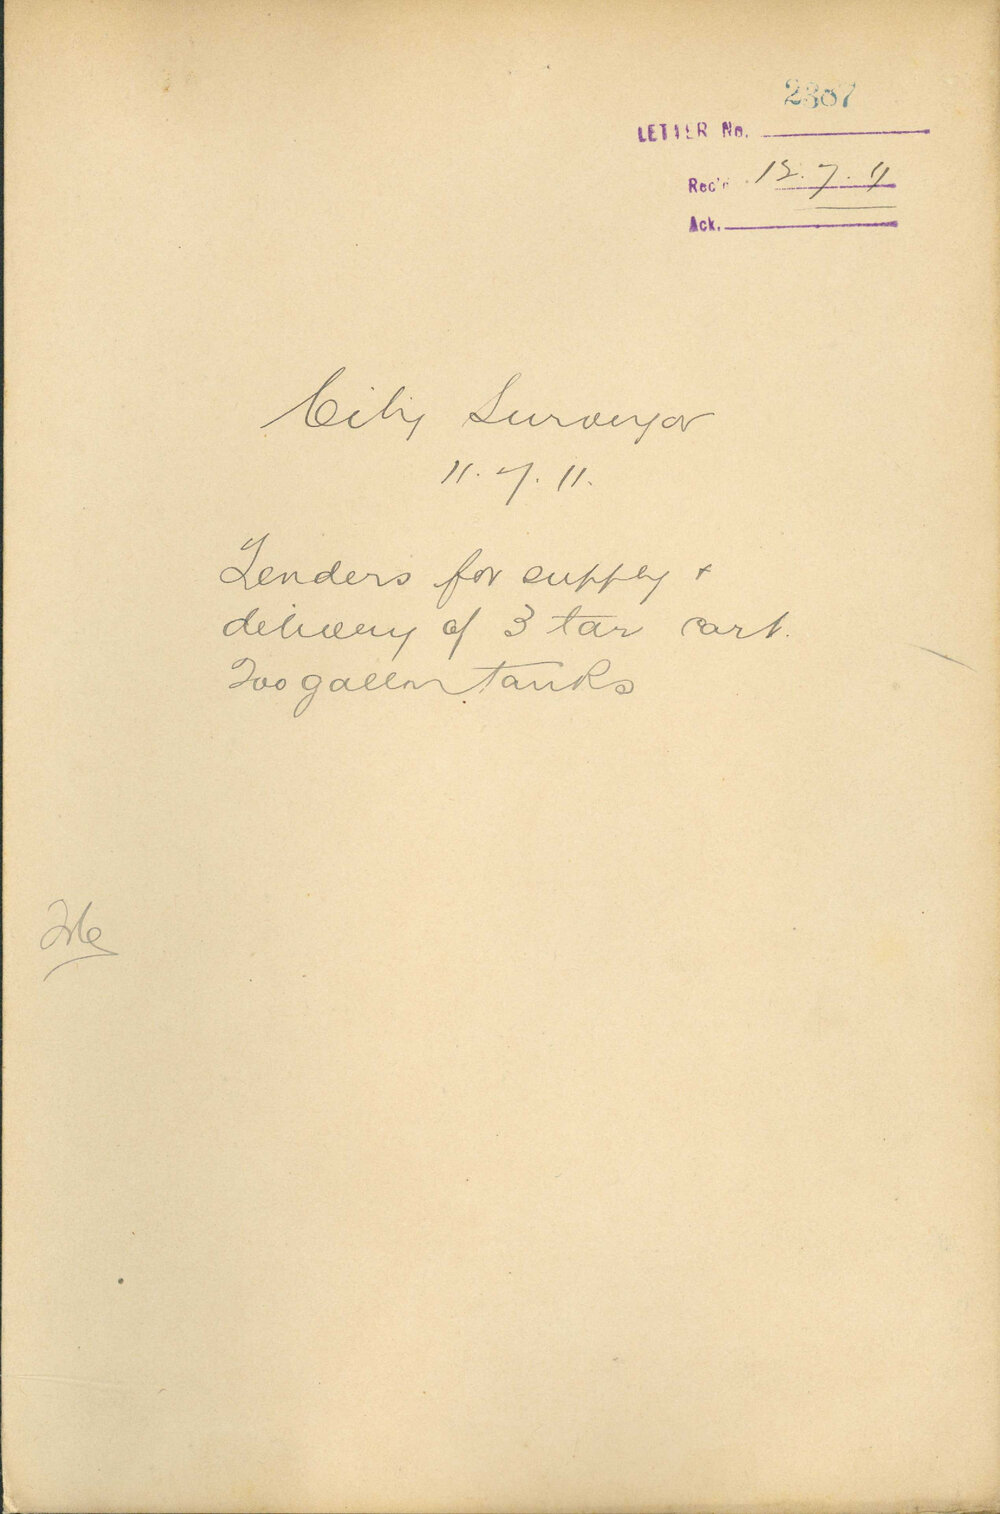 2387
LETTER No.
Rec'd 12.7.11
Ack.
City Surveyor
11.7.11.
Tenders for supply +
delivery of 3 tar cart.
200 gallon tanks
File